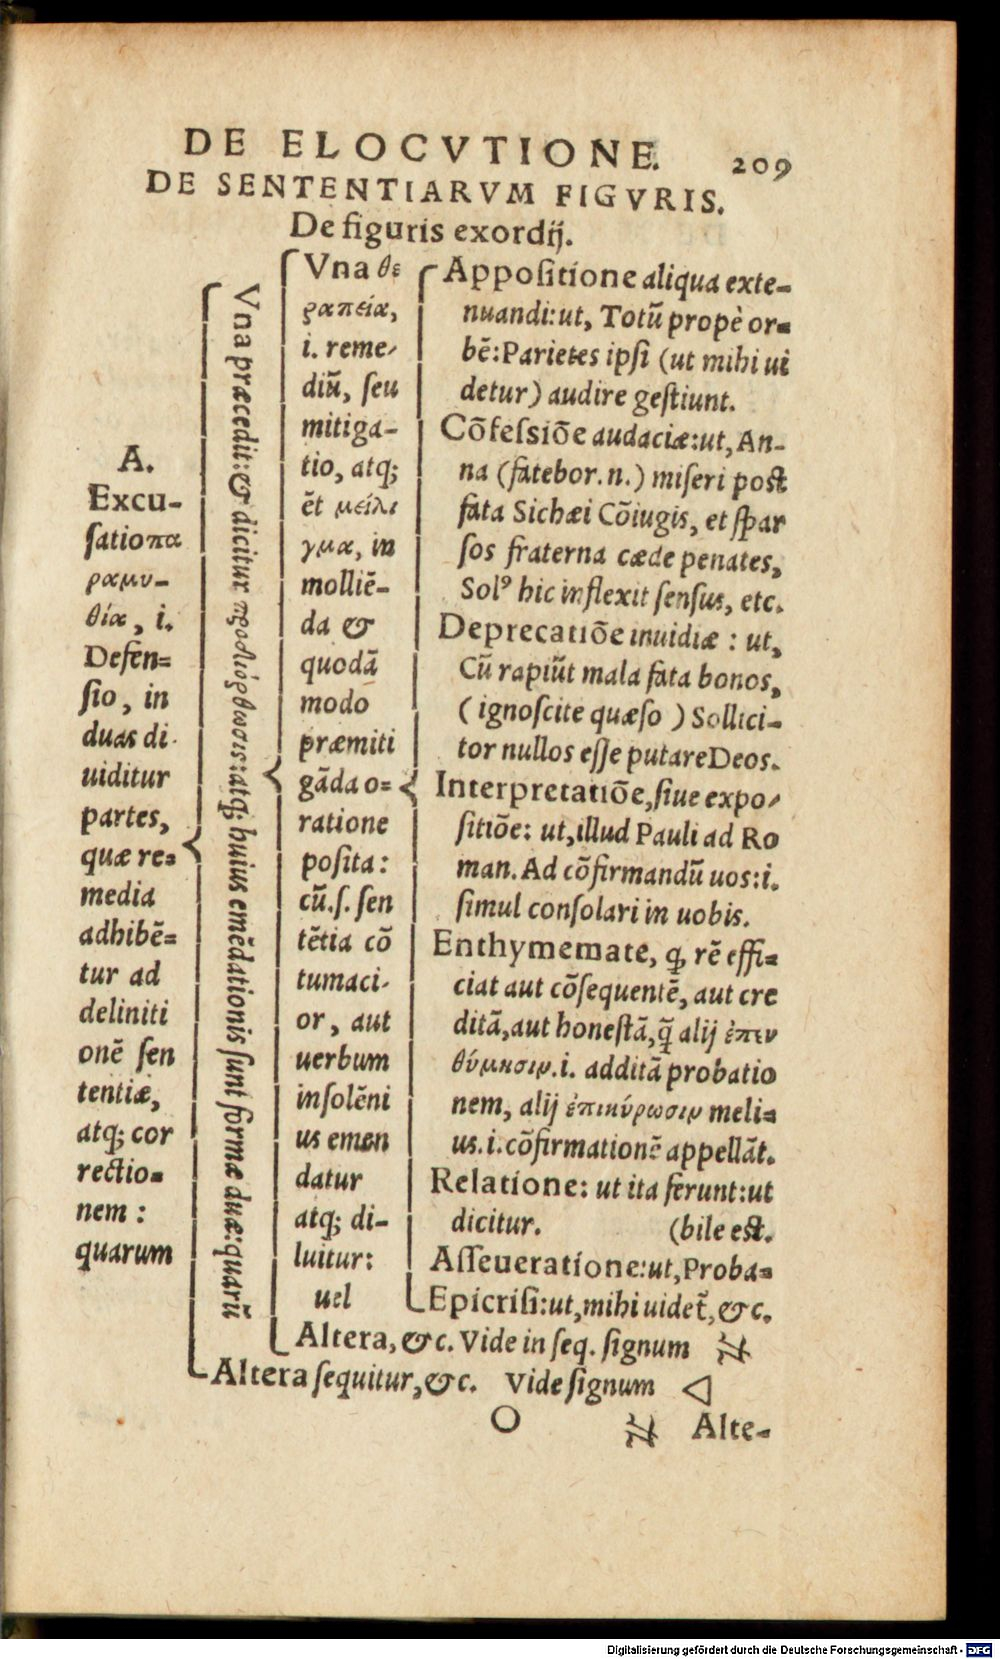 DE ELOCVTIONE. 209
DE SENTENTIARVM FIGVRIS.
De figuris exordij.
A.
Excu-
ſatio πα
ραμυ-
θία, i.
Defen=
ſio, in
duas di-
uiditur
partes,
quæ re=
media
adhibē=
tur ad
deliniti
onē ſen
tentiæ,
atq; cor
rectio=
nem :
quarum
Vna præcedit: & dicitur προδιόρθωσις: atq; huius emēdationis ſunt formæ duæ: quarū
Vna θε
ραπεία,
i. reme-
diū, ſeu
mitiga-
tio, atq;
ēt μείλι
γμα, in
molliē-
da &
quodā
modo
præmiti
gāda o=
ratione
poſita:
cū.ſ. ſen
tētia cō
tumaci-
or, aut
uerbum
inſolēni
us emen
datur
atq; di-
luitur:
uel
Appoſitione aliqua exte-
nuandi: ut, Totū propè or=
bē: Parietes ipſi (ut mihi ui
detur) audire geſtiunt.
Cōfeſsiōe audaciæ: ut, An-
na (fatebor. n.) miſeri poſt
fata Sichæi Cōiugis, et ſpar
ſos fraterna cæde penates,
Solꝰ hic inflexit ſenſus, etc.
Deprecatiōe inuidiæ : ut,
Cū rapiūt mala fata bonos,
( ignoſcite quæſo ) Sollici-
tor nullos eſſe putare Deos.
Interpretatiōe, ſiue expo-
ſitiōe: ut, illud Pauli ad Ro
man. Ad cōfirmandū uos: i.
ſimul conſolari in uobis.
Enthymemate, ꝙ rē effi=
ciat aut cōſequentē, aut cre
ditā, aut honeſtā, q̄ alij ἐπεν
θύμησιν. i. additā probatio
nem, alij ἐπικύρωσιν meli=
us. i. cōfirmationē appellāt.
Relatione: ut ita ferunt: ut
dicitur. (bile eſt.
Aſſeueratione: ut, Proba=
Epicriſi: ut, mihi uidet̄, & c.
Altera, & c. Vide in ſeq. ſignum
Altera ſequitur, & c. Vide ſignum
O Alte-
Digitalisierung gefördert durch die Deutsche Forschungsgemeinschaft - DFG